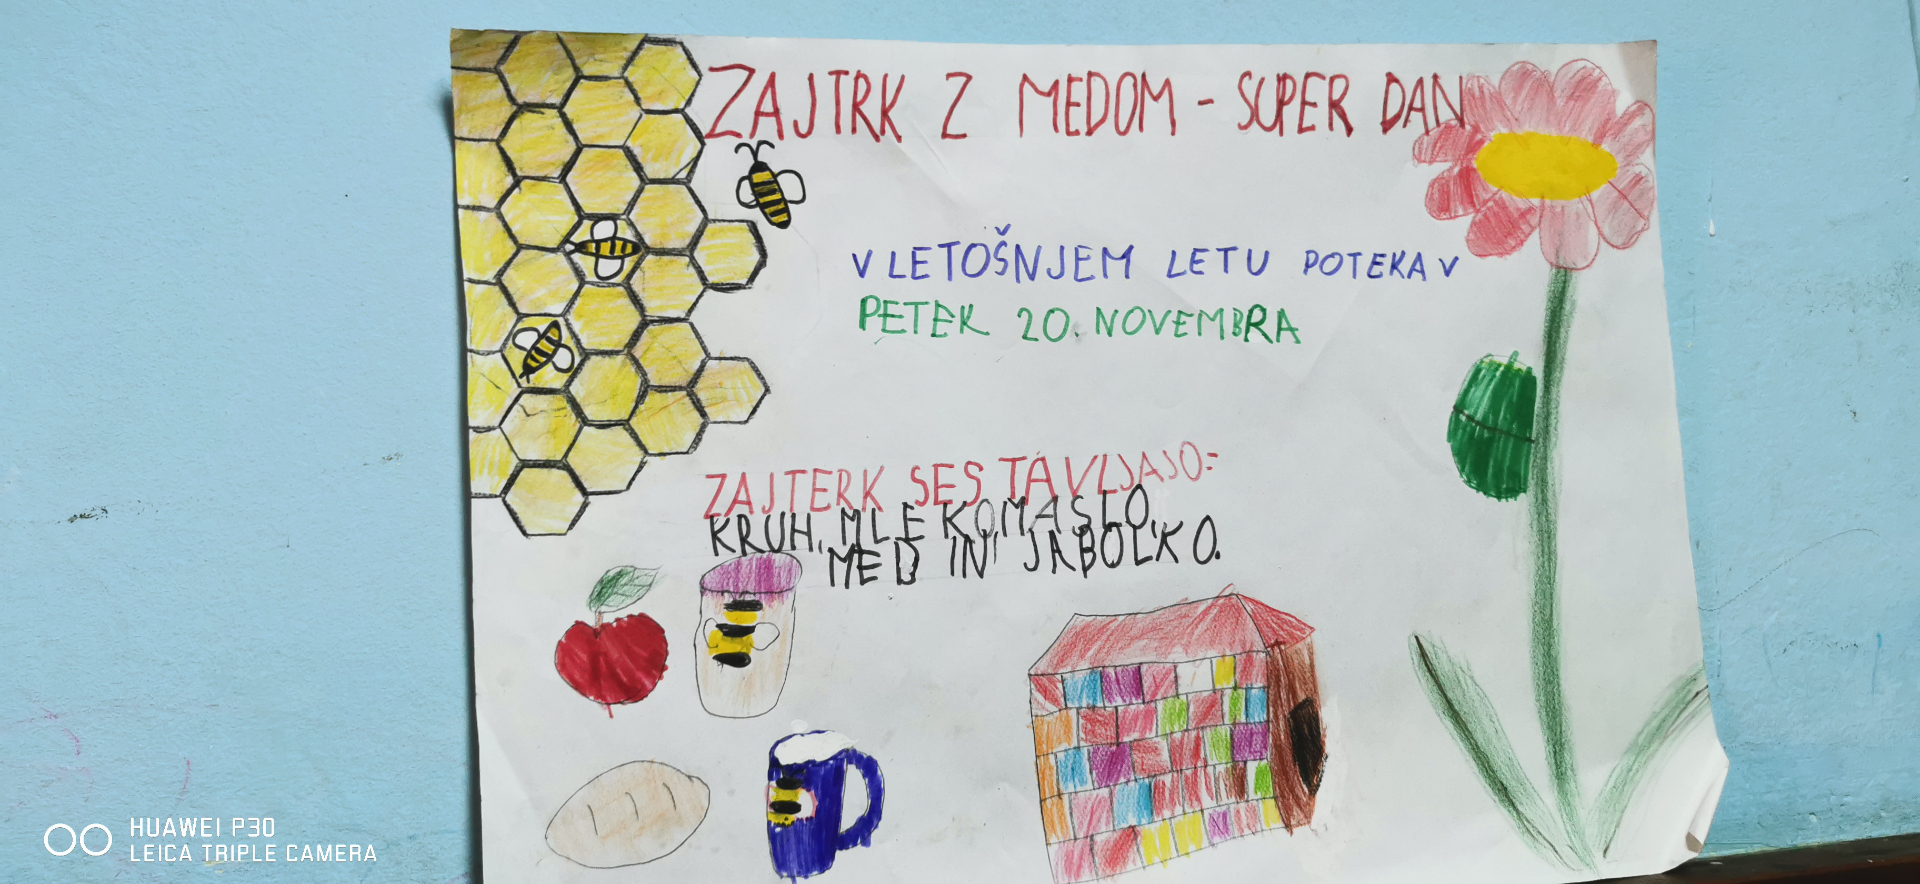 ZAJTRK Z MEDOM - SUPER DAN
V LETOŠNJEM LETU POTEKA V
PETEK 20. NOVEMBRA
ZAJTERK SESTAVLJAJO:
KRUH, MLEKO, MASLO,
MED IN JABOLKO.
HUAWEI P30
LEICA TRIPLE CAMERA